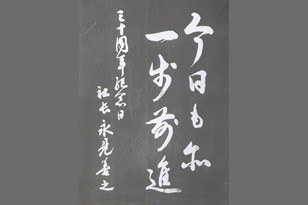 今日も亦
一歩前進
三十周年記念日
社長 永晃善之